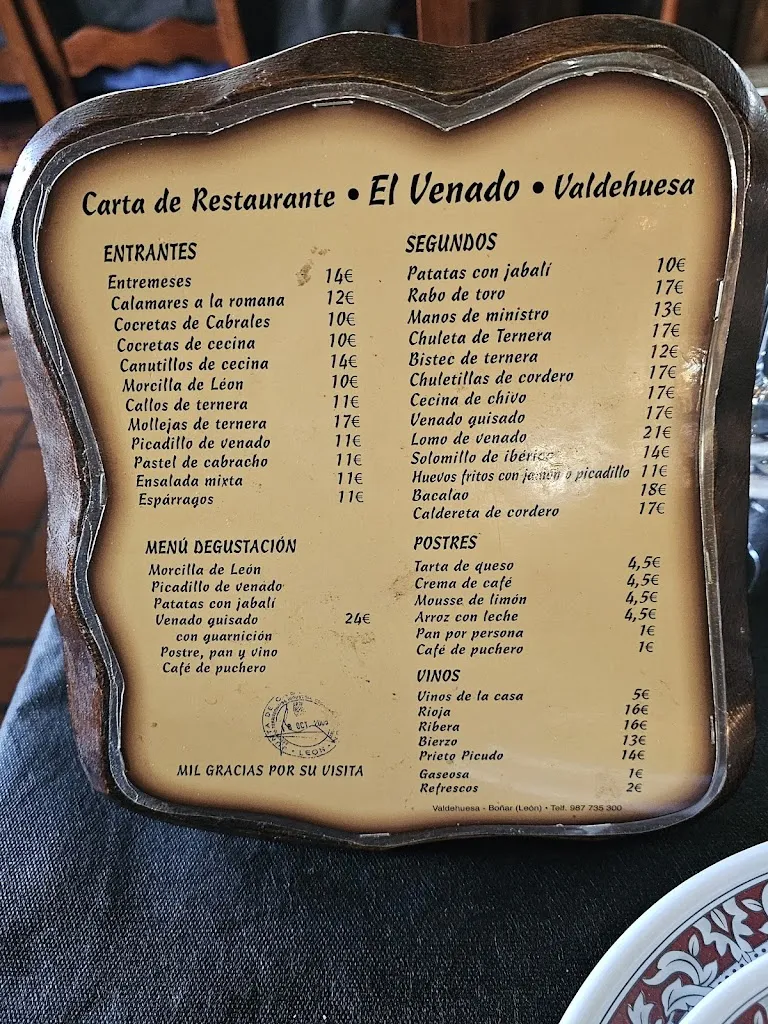 Carta de Restaurante • El Venado • Valdehuesa
ENTRANTES
Entremeses 14€
Calamares a la romana 12€
Cocretas de Cabrales 10€
Cocretas de cecina 10€
Canutillos de cecina 14€
Morcilla de Léon 10€
Callos de ternera 11€
Mollejas de ternera 17€
Picadillo de venado 11€
Pastel de cabracho 11€
Ensalada mixta 11€
Espárragos 11€
MENÚ DEGUSTACIÓN
Morcilla de León
Picadillo de venado
Patatas con jabalí
Venado guisado 24€
con guarnición
Postre, pan y vino
Café de puchero
OCT.
LEON
MIL GRACIAS POR SU VISITA
SEGUNDOS
Patatas con jabalí 10€
Rabo de toro 17€
Manos de ministro 13€
Chuleta de Ternera 17€
Bistec de ternera 12€
Chuletillas de cordero 17€
Cecina de chivo 17€
Venado guisado 17€
Lomo de venado 21€
Solomillo de ibérico 14€
Huevos fritos con jamón o picadillo 11€
Bacalao 18€
Caldereta de cordero 17€
POSTRES
Tarta de queso 4,5€
Crema de café 4,5€
Mousse de limón 4,5€
Arroz con leche 4,5€
Pan por persona 1€
Café de puchero 1€
VINOS
Vinos de la casa 5€
Rioja 16€
Ribera 16€
Bierzo 13€
Prieto Picudo 14€
Gaseosa 1€
Refrescos 2€
Valdehuesa - Boñar (León) • Telf. 987 735 300